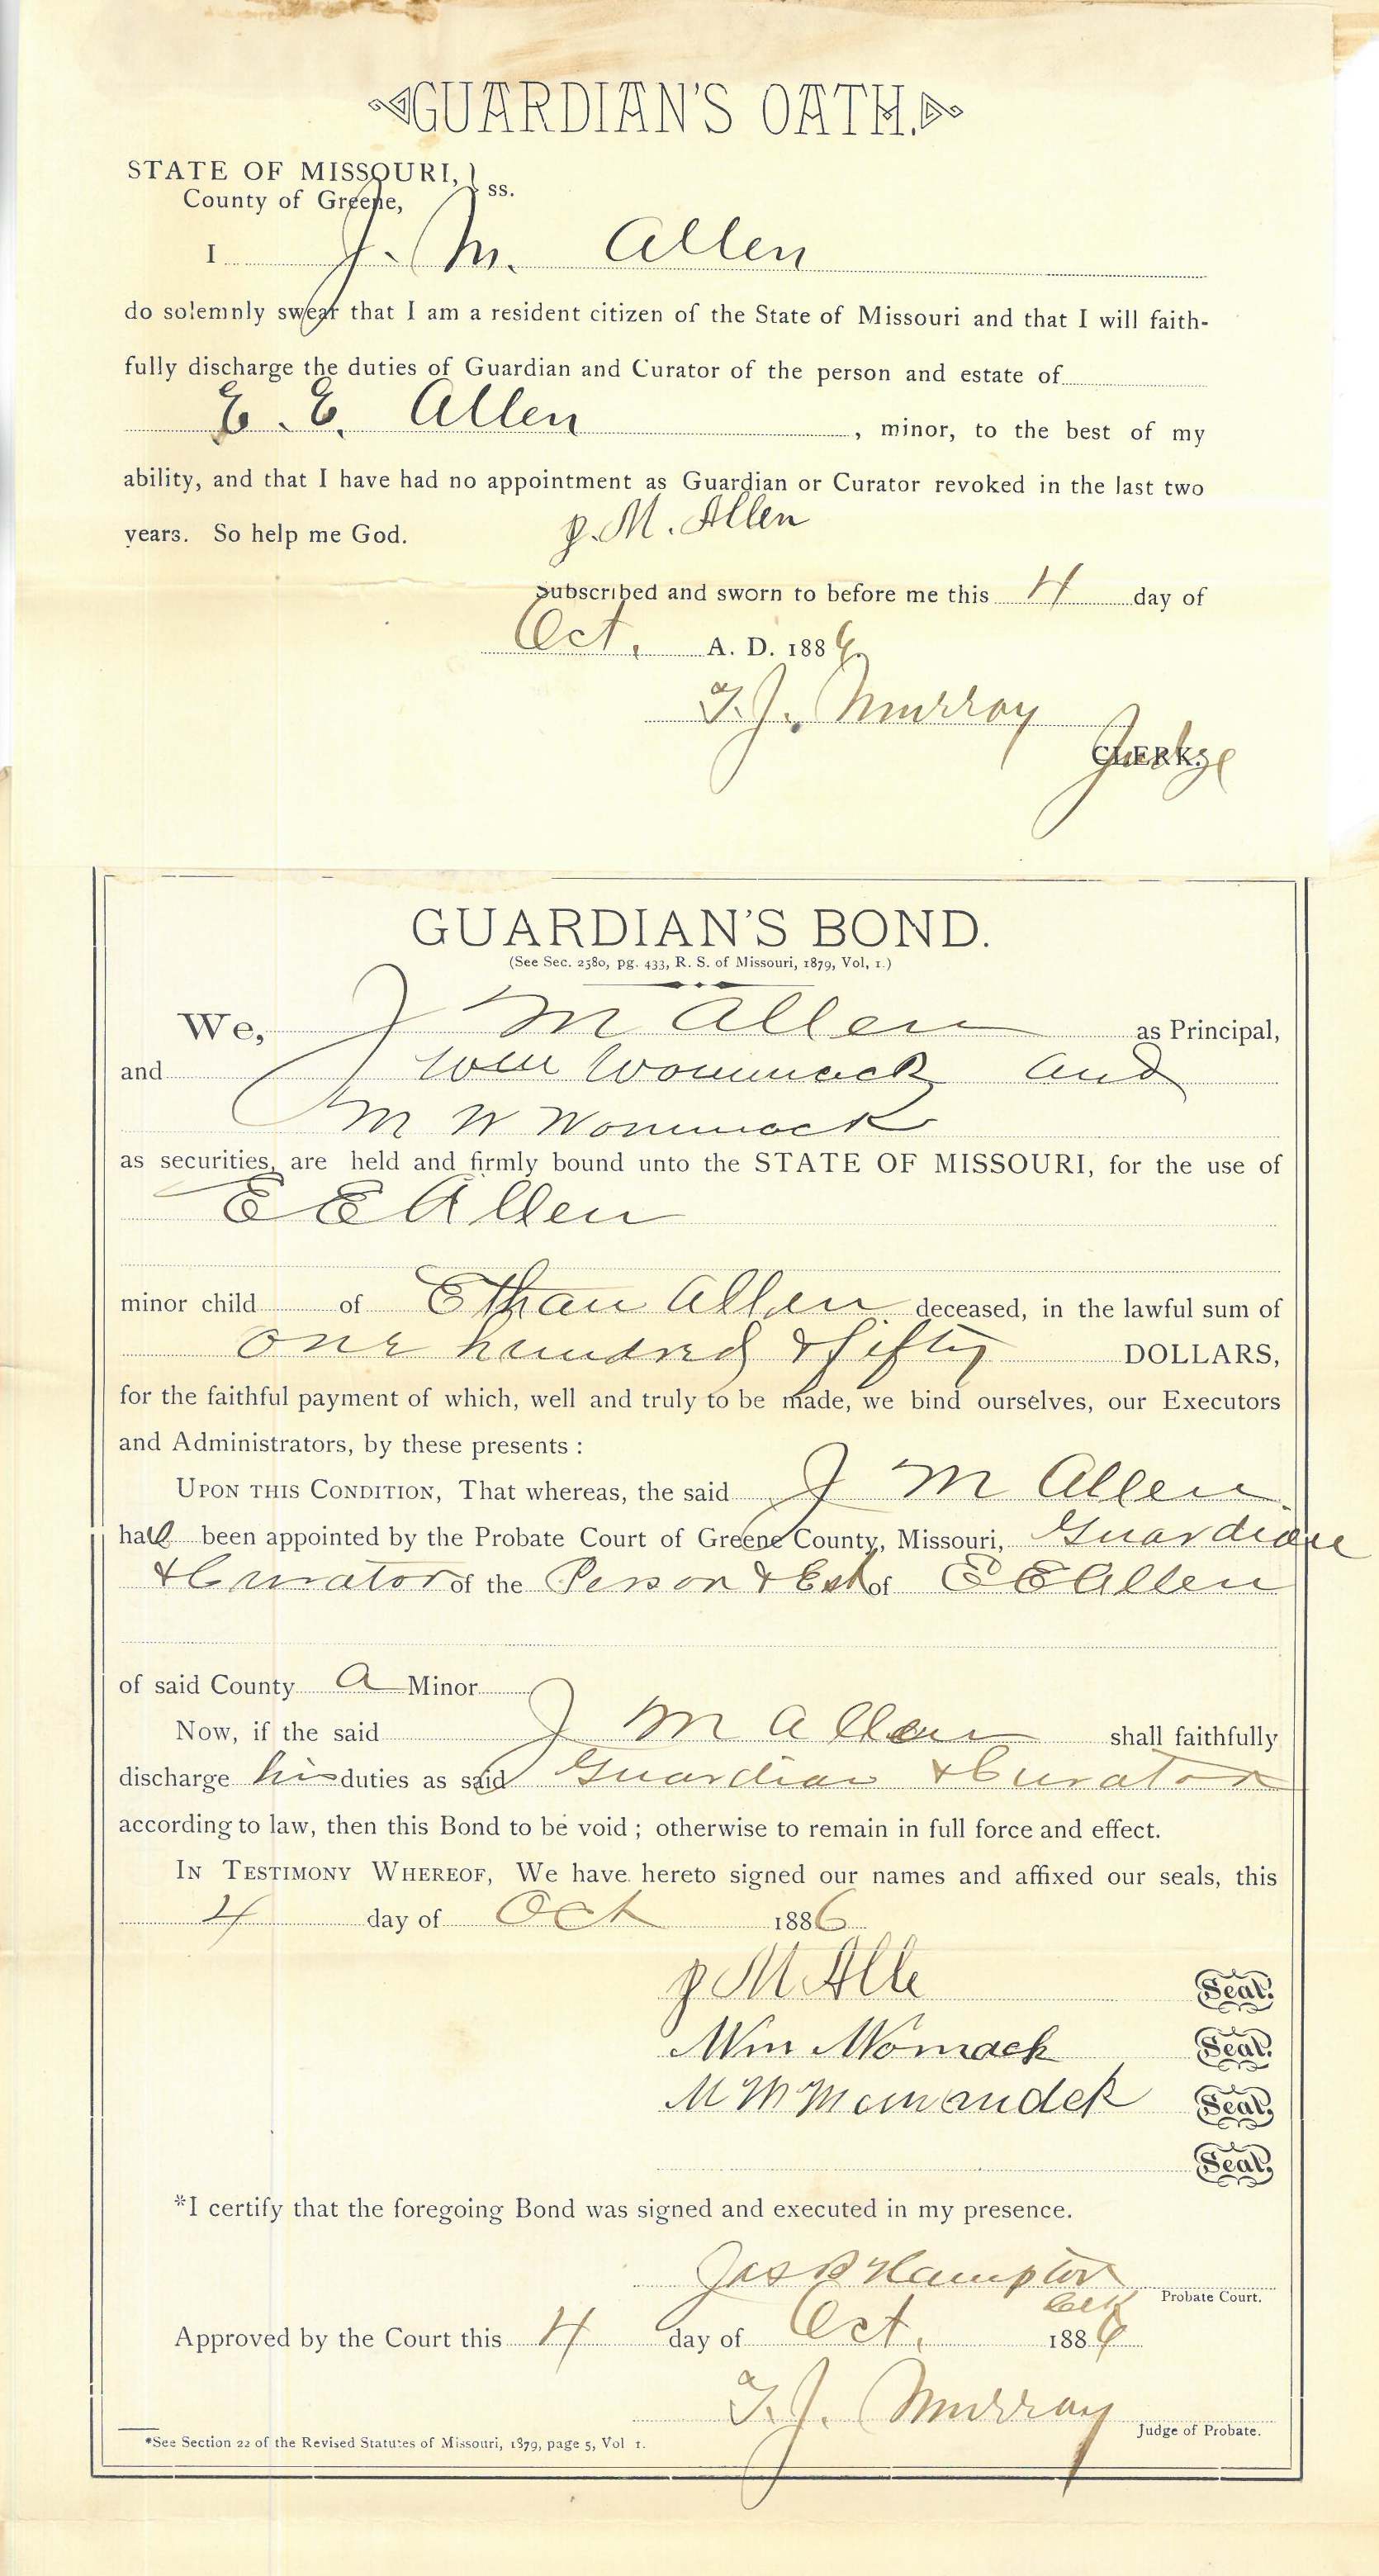 GUARDIAN'S OATH.
STATE OF MISSOURI, } ss.
County of Greene,
I J. M. Allen
do solemnly swear that I am a resident citizen of the State of Missouri and that I will faith-
fully discharge the duties of Guardian and Curator of the person and estate of
E. E. Allen, minor, to the best of my
ability, and that I have had no appointment as Guardian or Curator revoked in the last two
years. So help me God. J. M. Allen
Subscribed and sworn to before me this 4 day of
Oct. A. D. 1886.
T. J. Murray
CLERK. Judge
GUARDIAN'S BOND.
(See Sec. 2580, pg. 433, R. S. of Missouri, 1879, Vol, 1.)
We, J M Allen as Principal,
and Wm Wommack and
M W Wommack
as securities, are held and firmly bound unto the STATE OF MISSOURI, for the use of
E E Allen
minor child of Ethan Allen deceased, in the lawful sum of
one hundred & fifty DOLLARS,
for the faithful payment of which, well and truly to be made, we bind ourselves, our Executors
and Administrators, by these presents :
UPON THIS CONDITION, That whereas, the said J M Allen
had been appointed by the Probate Court of Greene County, Missouri, Guardian
& Curator of the Person & Est of E E Allen
of said County a Minor
Now, if the said J M Allen shall faithfully
discharge his duties as said Guardian & Curator
according to law, then this Bond to be void ; otherwise to remain in full force and effect.
IN TESTIMONY WHEREOF, We have hereto signed our names and affixed our seals, this
4 day of Oct 1886
J M Alle Seal.
Wm Womack Seal.
M W Seal.
Seal.
*I certify that the foregoing Bond was signed and executed in my presence.
Jas R Hampton
Clk Probate Court.
Approved by the Court this 4 day of Oct. 1886
T. J. Murray
Judge of Probate.
*See Section 22 of the Revised Statutes of Missouri, 1879, page 5, Vol 1.